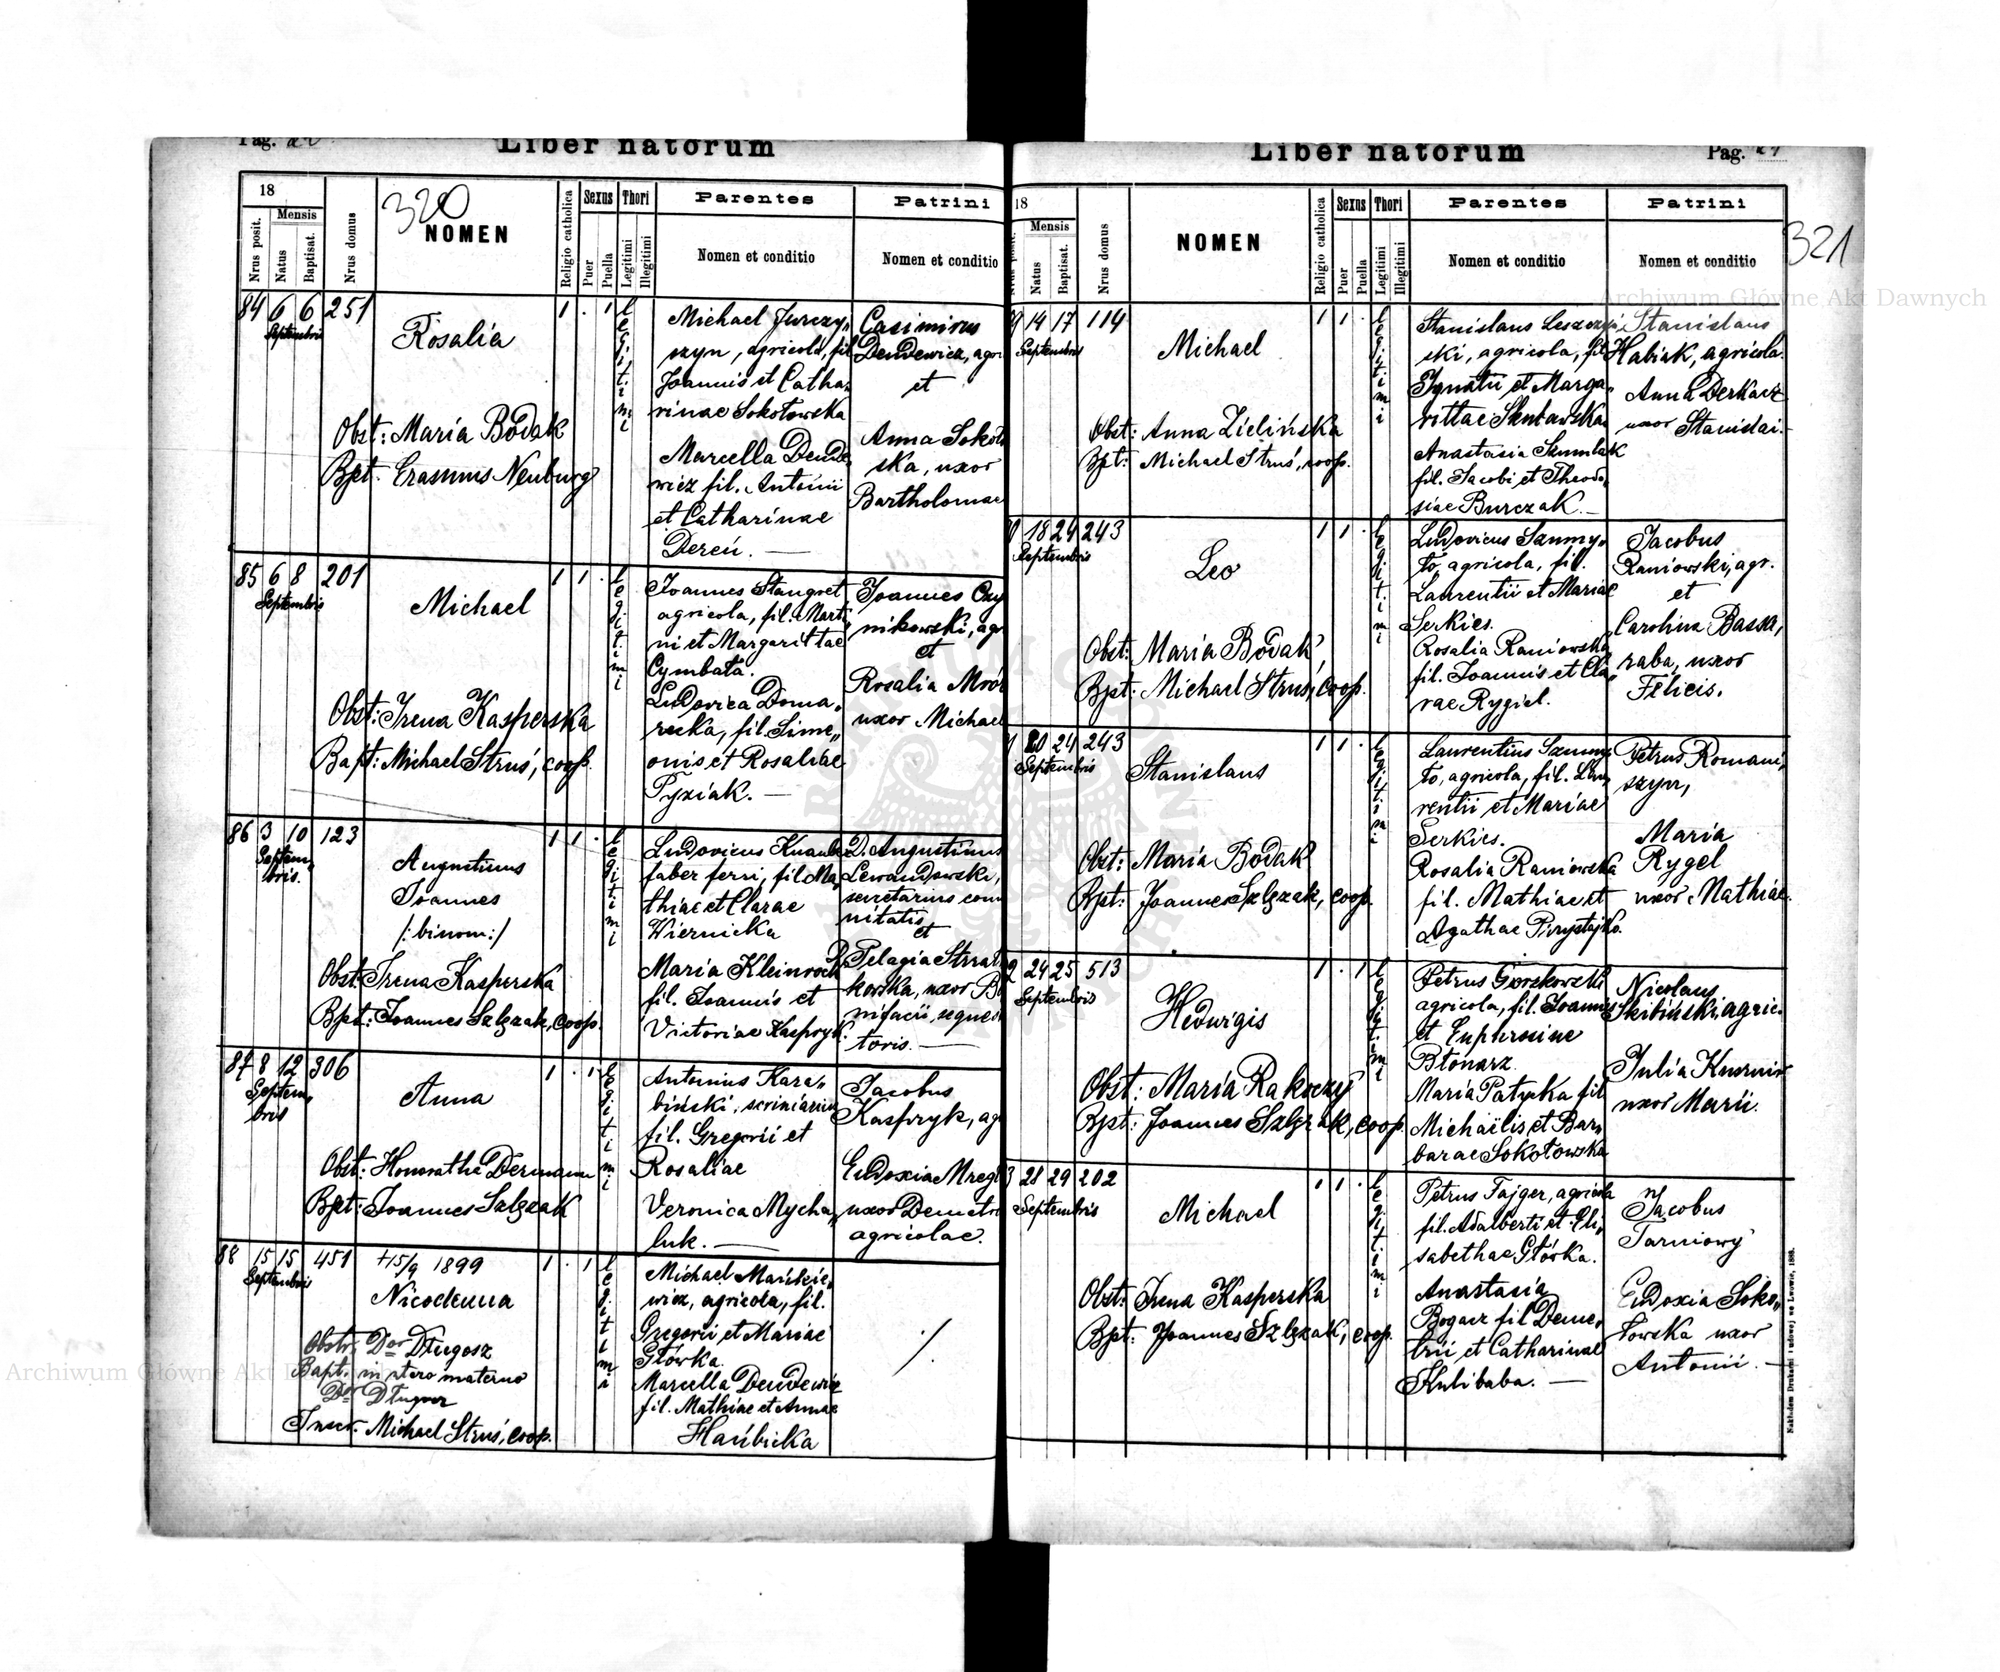 Liber natorum
Pag.
320
18
Nrus posit.
Mensis
Natus
Baptisat.
Nrus domus
NOMEN
Religio catholica
Sexus
Puer
Puella
Thori
Legitimi
Illegitimi
Parentes
Nomen et conditio
Patrini
Nomen et conditio
84 6 6 251
Septembris
Rosalia
1 . 1
legitimi
Obst: Maria Bodak
Bpt: Erasmus Neuburg
Michael Jurczy„
szyn, agricola, fil
Joannis et Catha„
rinae Sokołowska
Marcella Dende
wicz fil. Antonii
et Catharinae
Dereń. —
Casimirus
Dendewicz, agri
et
Anna Sokoło
ska, uxor
Bartholomae
85 6 8 201
Septembris
Michael
1 1 .
legitimi
Obst: Irena Kasperska
Bapt: Michael Struś, coop.
Joannes Stangret
agricola, fil. Marti„
ni et Margarittae
Cymbała.
Ludovica Doma„
recka, fil. Sime„
onis et Rosaliae
Pyziak. —
Joannes Czy
nikowski, agr
et
Rosalia Mró
uxor Michael
86 3 10 123
Septem„
bris.
Augustinus
Joannes
/: binom :/
1 1 .
legitimi
Obst: Irena Kasperska
Bpt: Joannes Szlęzak, coop.
Ludovicus Knaube
faber ferri, fil Ma„
thiae et Clarae
Wiernicka
Maria Kleinrock
fil. Joannis et
Victoriae Kaspryk.
D. Augustinus
Lewandowski,
secretarius com
nitatis
et
D. Pelagia Strat
kowska, uxor Bo
nifacii, seques
toris. —
87 8 12 306
Septem„
bris
Anna
1 . 1
legitimi
Obst: Honorathe Dermann
Bpt: Joannes Szlęzak
Antonius Kara„
biński, scriniarius
fil. Gregorii et
Rosaliae
Veronica Mycha„
luk. —
Jacobus
Kaspryk, ag
Eudoxia Mreg
uxor Demetri
agricolae.
88 15 15 451
Septembris
+15/9 1899
Nicodema
1 . 1
legitimi
Obstr. Dor Długosz
Bapt. in utero materno
Dor Długosz
Inscr. Michael Struś, coop.
Michael Mańkie„
wicz, agricola, fil.
Gregorii et Mariae
Główka.
Marcella Dendewicz
fil. Mathiae et Annae
Hańbicka
./.
Liber natorum
Pag.
321
18
Mensis
Natus
Baptisat.
Nrus domus
NOMEN
Religio catholica
Sexus
Puer
Puella
Thori
Legitimi
Illegitimi
Parentes
Nomen et conditio
Patrini
Nomen et conditio
9 14 17 114
Septembris
Michael
1 1 .
legitimi
Obst: Anna Zielińska
Bpt: Michael Struś, coop.
Stanislaus Leszczyń„
ski, agricola, fil
Ignatii et Marga„
rittae
Anastasia Szumlak
fil. Jacobi et Theodo„
siae Burczak. —
Stanislaus
Habiak, agricola.
Anna Derkacz
uxor Stanislai. —
0 18 24 243
Septembris
Leo
1 1 .
legitimi
Obst: Maria Bodak
Bpt: Michael Struś, coop.
Ludovicus Szumy„
to, agricola, fil.
Laurentii et Mariae
Serkies.
Rosalia Raniowska
fil. Joannis et Cla„
rae Rygiel.
Jacobus
Raniowski, agr.
et
Carolina Bassa„
raba, uxor
Felicis.
1 20 24 243
Septembris
Stanislaus
1 1 .
legitimi
Obst: Maria Bodak
Bpt: Joannes Szlęzak, coop.
Laurentius Szumy„
to, agricola, fil. Lau„
rentii et Mariae
Serkies.
Rosalia Raniowska
fil. Mathiae et
Agathae Pirystajko.
Petrus Romani„
szyn,
Maria
Rygel
uxor Mathiae.
2 24 25 513
Septembris
Hedwigis
1 . 1
legitimi
Obst: Maria Rakoczy
Bpt: Joannes Szlęzak, coop.
Petrus Gorzkowski
agricola, fil. Joannis
et Euphrosine
Błonarz
Maria Patycka fil
Michaëlis et Bar„
barae Sokołowska
Nicolaus
Skibiński, agric.
Julia
uxor Marii.
3 28 29 202
Septembris
Michael
1 1 .
legitimi
Obst: Irena Kasperska
Bpt: Joannes Szlęzak, coop.
Petrus Fajger, agricola
fil. Adalberti et Eli„
sabethae Główka.
Anastasia
Bogacz fil Deme„
trii et Catharinae
Kulibaba. —
Jacobus
Tarniowy
Eudoxia Soko„
łowska uxor
Antonii. —
Nakładem Drukarni Ludowej we Lwowie, 1888.
Archiwum Główne Akt Dawnych
Archiwum Główne Akt Dawnych